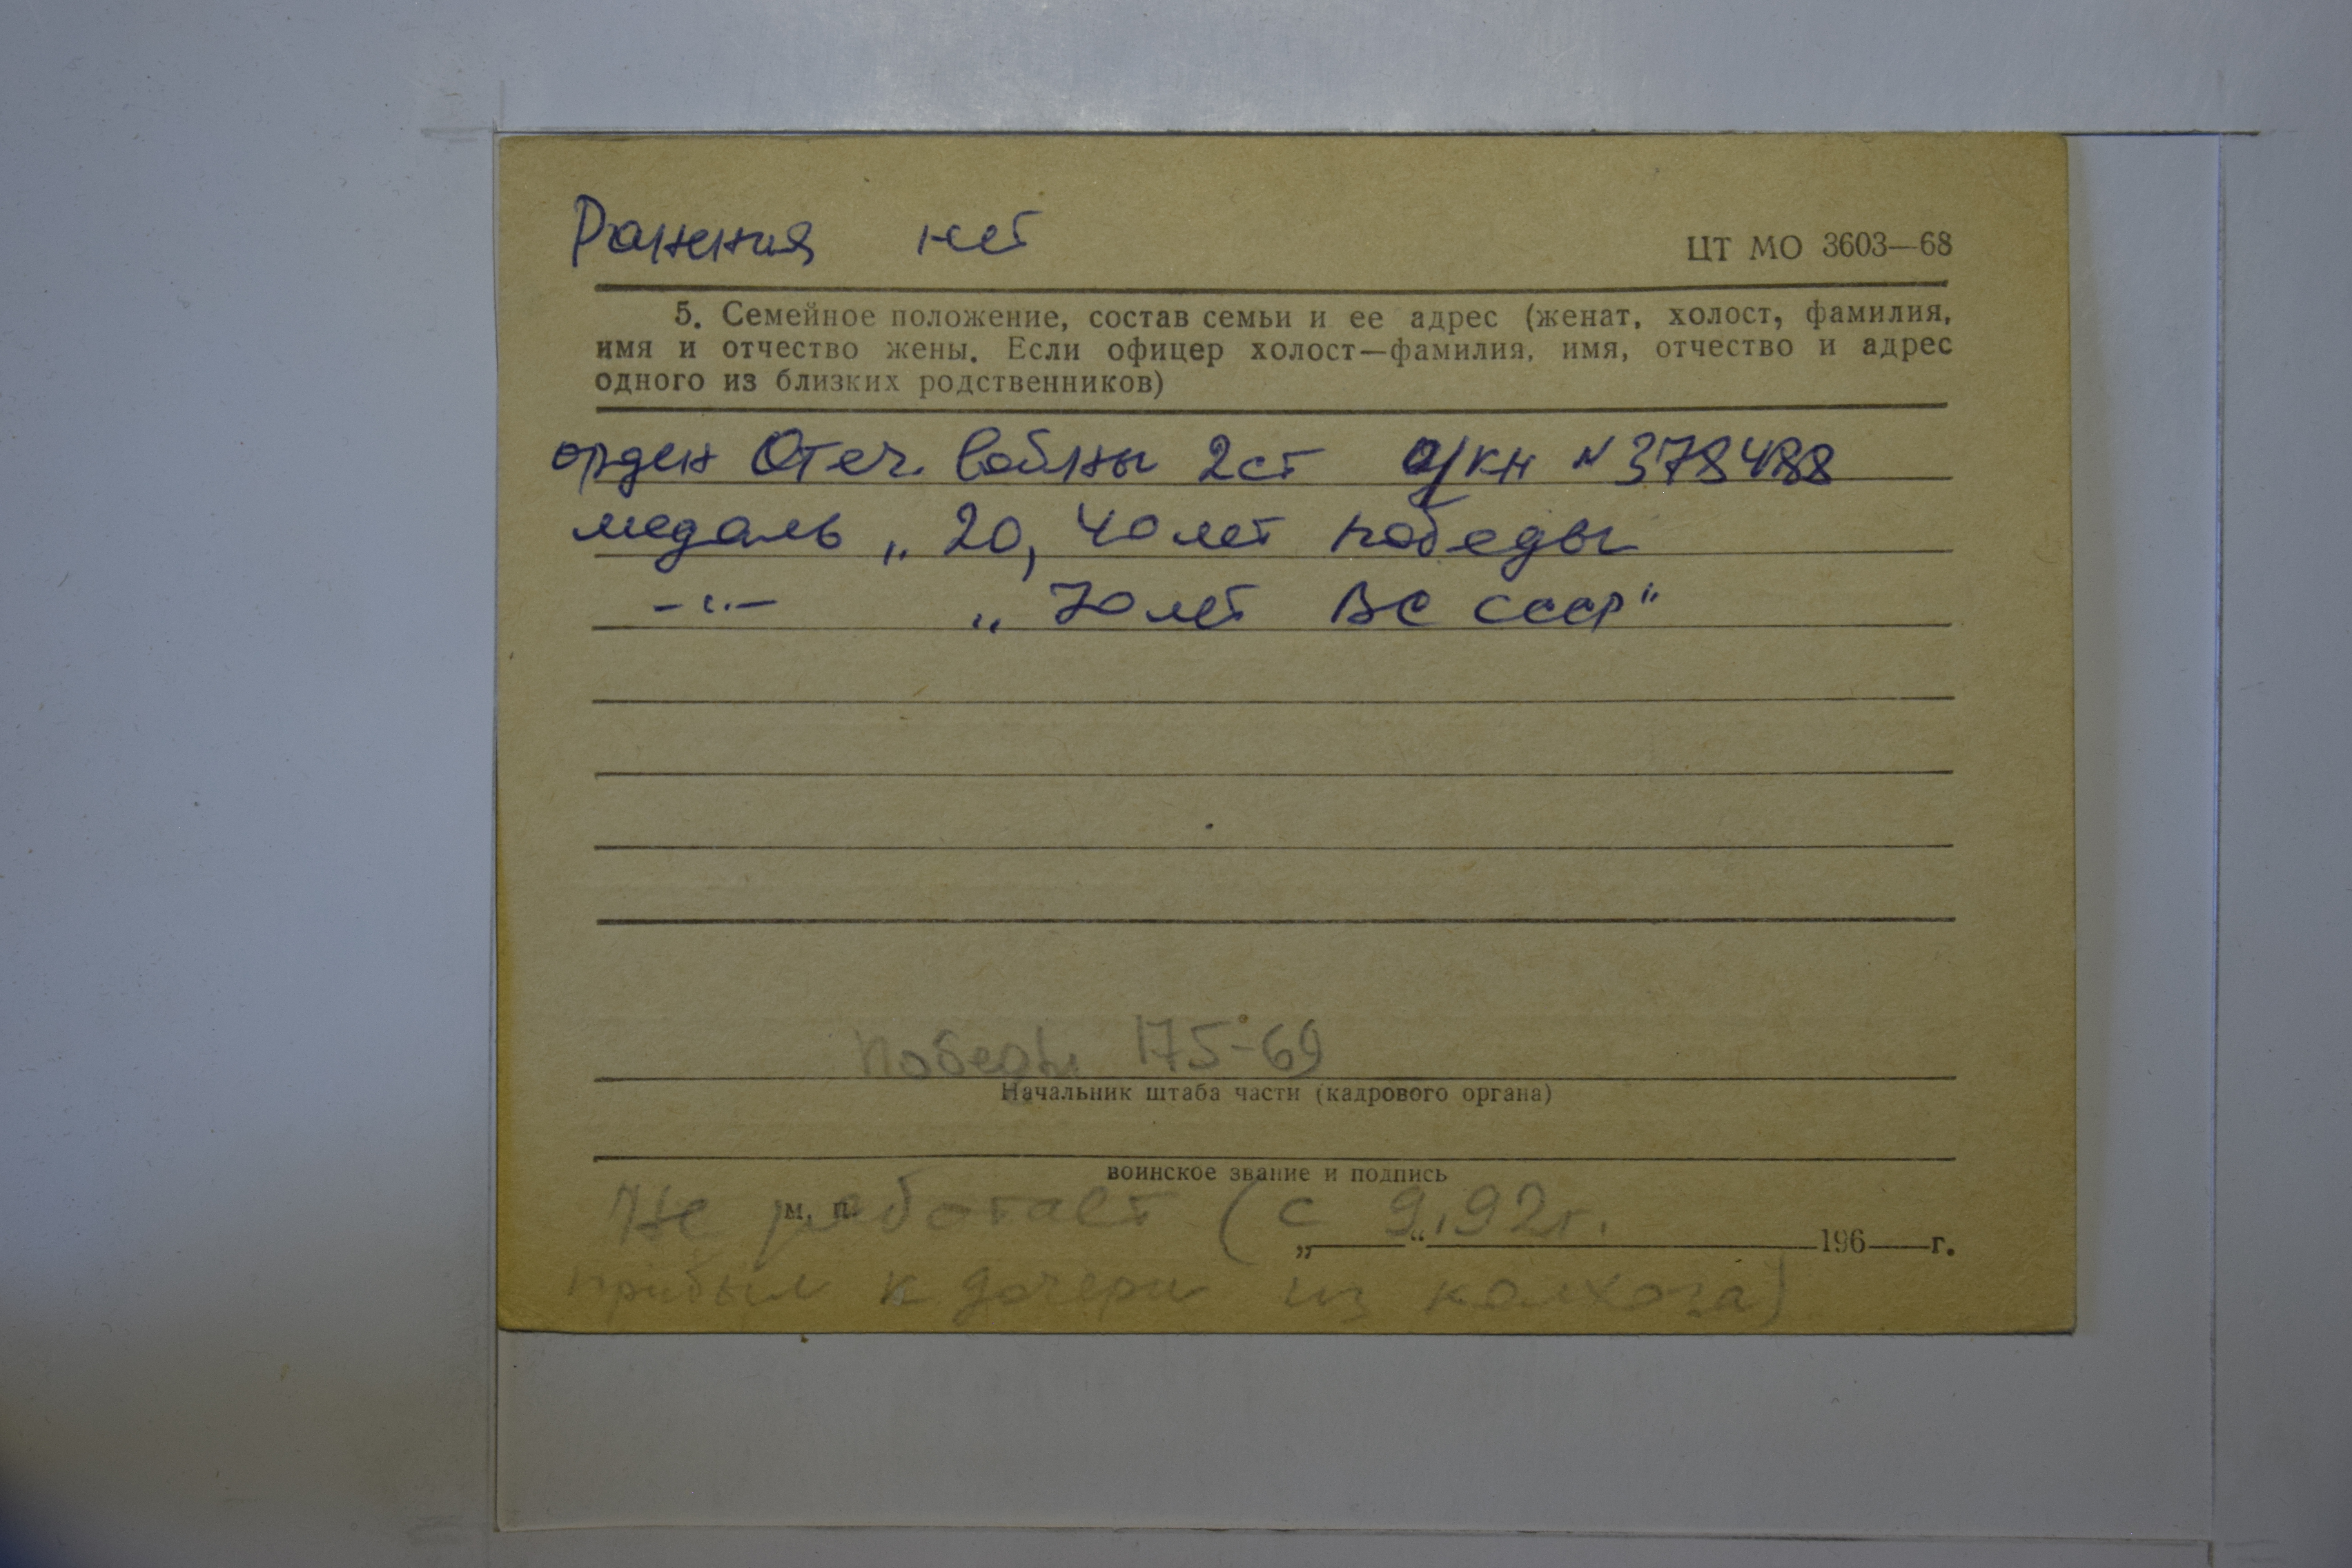 Ранения нет
ЦТ МО 3603—68
5. Семейное положение, состав семьи и ее адрес (женат, холост, фамилия,
имя и отчество жены. Если офицер холост—фамилия, имя, отчество и адрес
одного из близких родственников)
орден Отеч. войны 2ст о/кн №378488
медаль „20, 40 лет победы
–"– „70 лет ВС СССР"
Победы 175-69
Начальник штаба части (кадрового органа)
воинское звание и подпись
Не работает (с 9.92г.
м. п.
„ “ 196 г.
прибыл к дочери из колхоза)